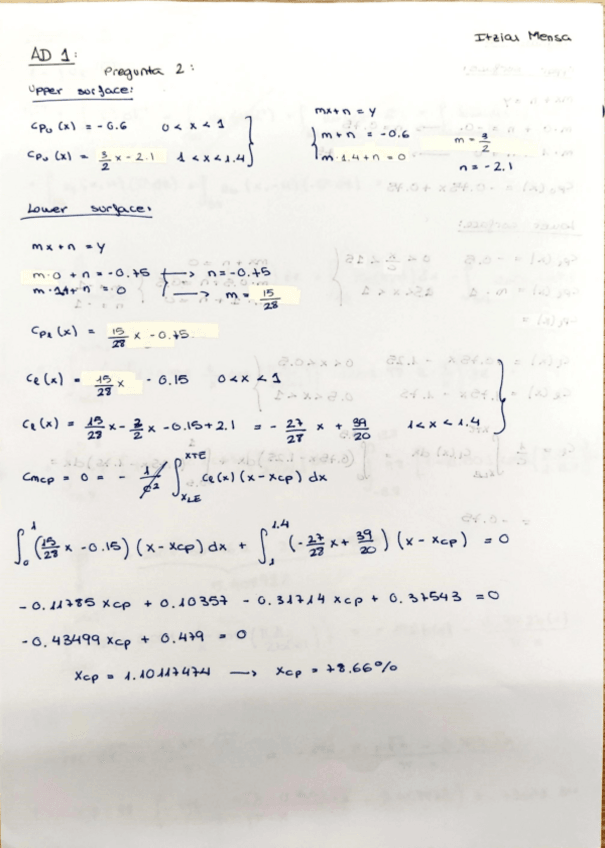 Itziar Mensa
AD 1:
Pregunta 2:
Upper surface:
Cpu (x) = -0.6 0 < x < 1
Cpu (x) = 3/2 x - 2.1 1 < x < 1.4
mx+n = y
m+n = -0.6
m·1.4+n = 0
m = 3/2
n = -2.1
Lower surface:
mx + n = y
m·0 + n = -0.75 → n = -0.75
m·1.4 + n = 0 → m = 15/28
Cpl (x) = 15/28 x - 0.75
Cl (x) = 15/28 x - 0.15 0 < x < 1
Cl (x) = 15/28 x - 3/2 x - 0.15 + 2.1 = - 27/28 x + 39/20 1 < x < 1.4
Cmcp = 0 = - 1/c² ∫ xLE xTE Cl (x) (x - xcp) dx
∫ 0 1 (15/28 x - 0.15) (x - xcp) dx + ∫ 1 1.4 (- 27/28 x + 39/20) (x - xcp) = 0
-0.11785 xcp + 0.10357 - 0.31714 xcp + 0.37543 = 0
-0.43499 xcp + 0.479 = 0
xcp = 1.10117474 → xcp = 78.66%